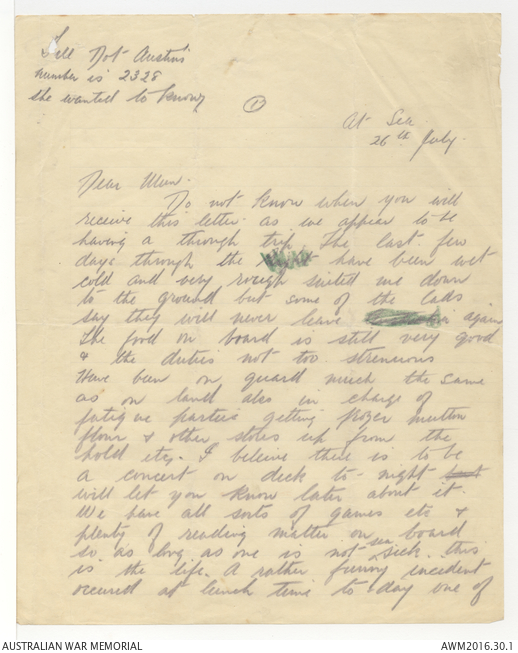 Tell Dot Austins
number is 2328
she wanted to know
1
At Sea
26th July.
Dear Mum.
Do not know when you will
receive this letter as we appear to be
having a through trip. The last few
days through the have been wet
cold and very rough suited me down
to the ground but some of the lads
say they will never leave again
The food on board is still very good
& the duties not too strenuous
Have been on guard much the same
as on land also in charge of
fatigue parties getting frozer mutton
flour & other stores up from the
hold etc. I beleive there is to be
a concert on deck to-night but
will let you know later about it.
We have all sorts of games etc &
plenty of reading matter on board
so as long as one is not sea sick this
is the life. A rather funny incident
occured at lunch time to-day one of
AUSTRALIAN WAR MEMORIAL
AWM2016.30.1